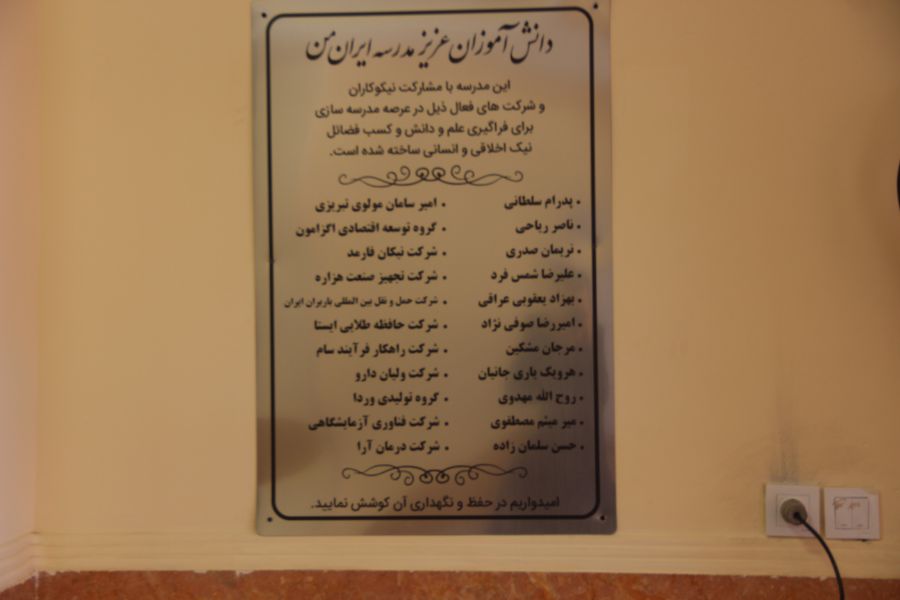 دانش آموزان عزیز مدرسه ایران من
این مدرسه با مشارکت نیکوکاران
و شرکت های فعال ذیل در عرصه مدرسه سازی
برای فراگیری علم و دانش و کسب فضائل
نیک اخلاقی و انسانی ساخته شده است.
• پدرام سلطانی
• ناصر ریاحی
• نریمان صدری
• علیرضا شمس فرد
• بهزاد یعقوبی عراقی
• امیررضا صوفی نژاد
• مرجان مشکین
• هرویک یاری جانیان
• روح الله مهدوی
• میر میثم مصطفوی
• حسن سلمان زاده
• امیر سامان مولوی تبریزی
• گروه توسعه اقتصادی اگزامون
• شرکت نیکان فارمد
• شرکت تجهیز صنعت هزاره
• شرکت حمل و نقل بین المللی باربران ایران
• شرکت حافظه طلایی ایستا
• شرکت راهکار فرآیند سام
• شرکت ولیان دارو
• گروه تولیدی وردا
• شرکت فناوری آزمایشگاهی
• شرکت درمان آرا
امیدواریم در حفظ و نگهداری آن کوشش نمایید.